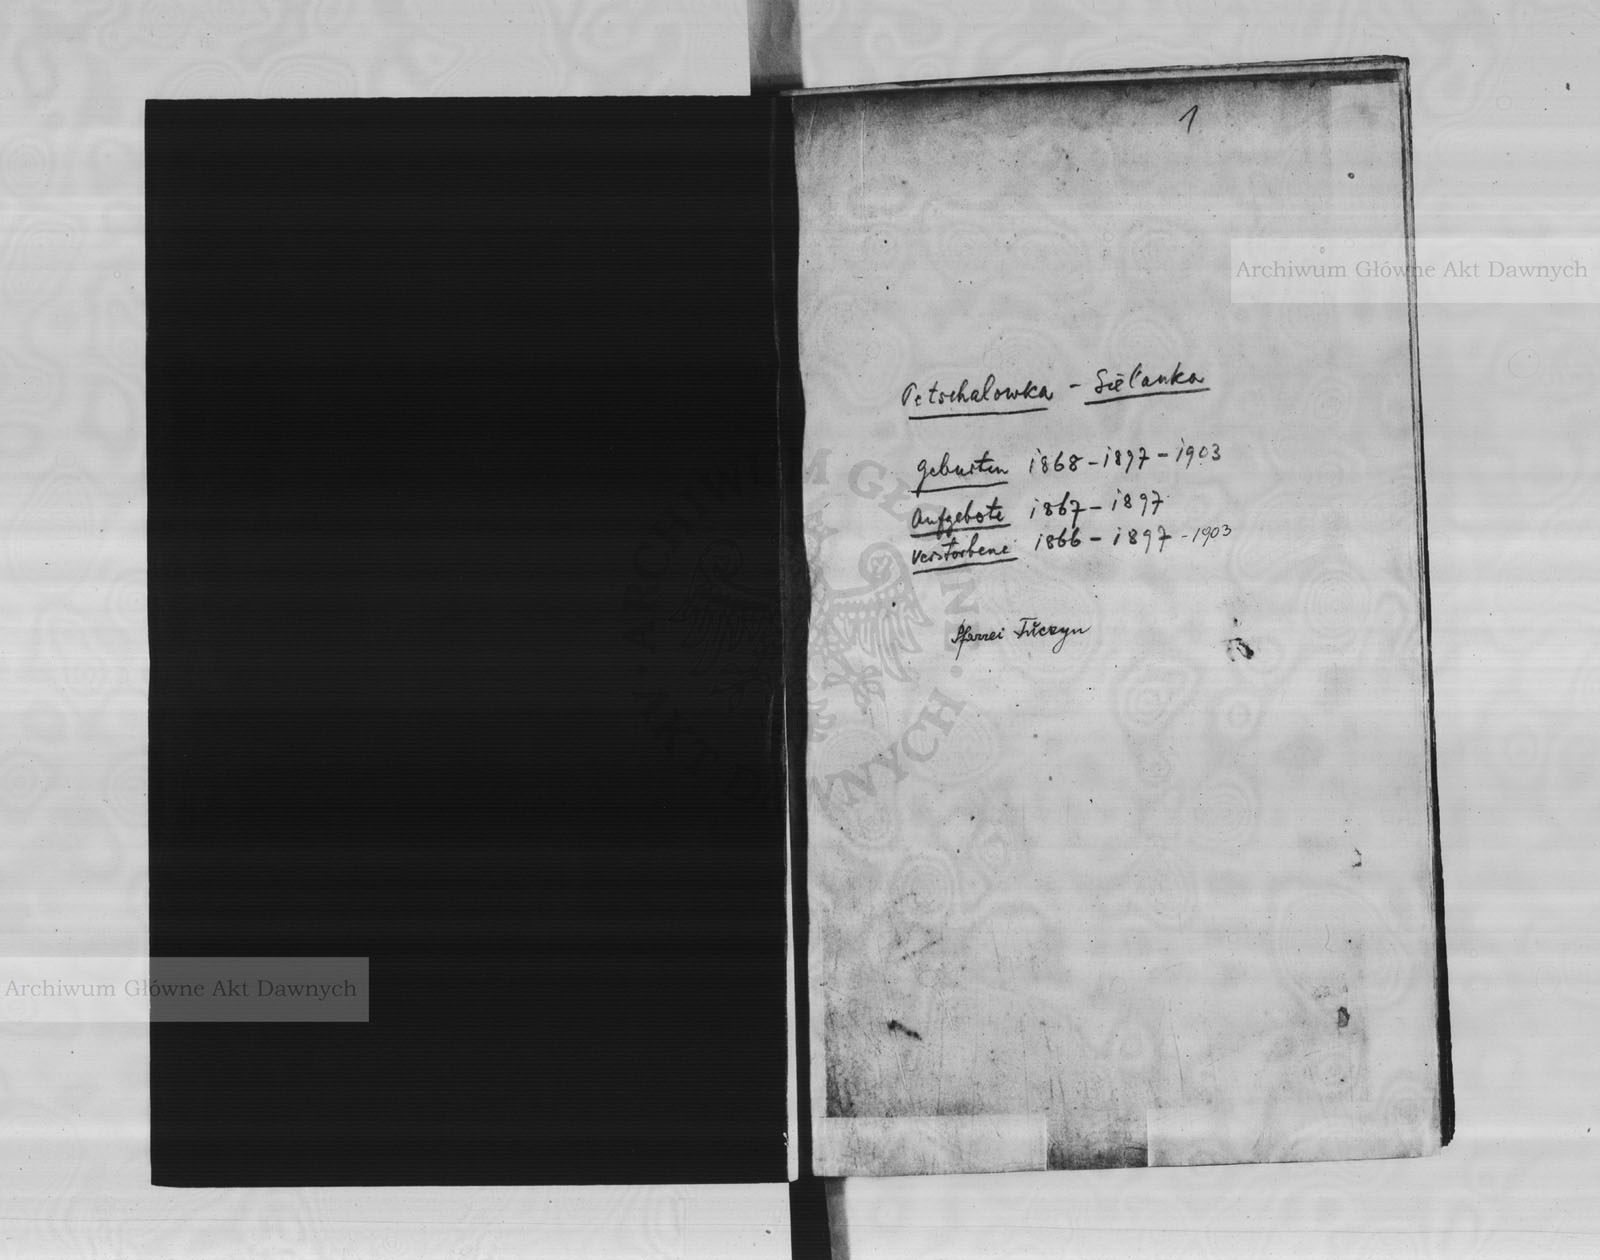 1
Archiwum Główne Akt Dawnych
Petschalowka - Sielanka
Geburten 1868-1897-1903
Aufgebote 1867-1897
Verstorbene 1866-1897-1903
Pfarrei Tuczyn
ARCHIWUM GŁÓWNE · AKT DAWNYCH ·
Archiwum Główne Akt Dawnych